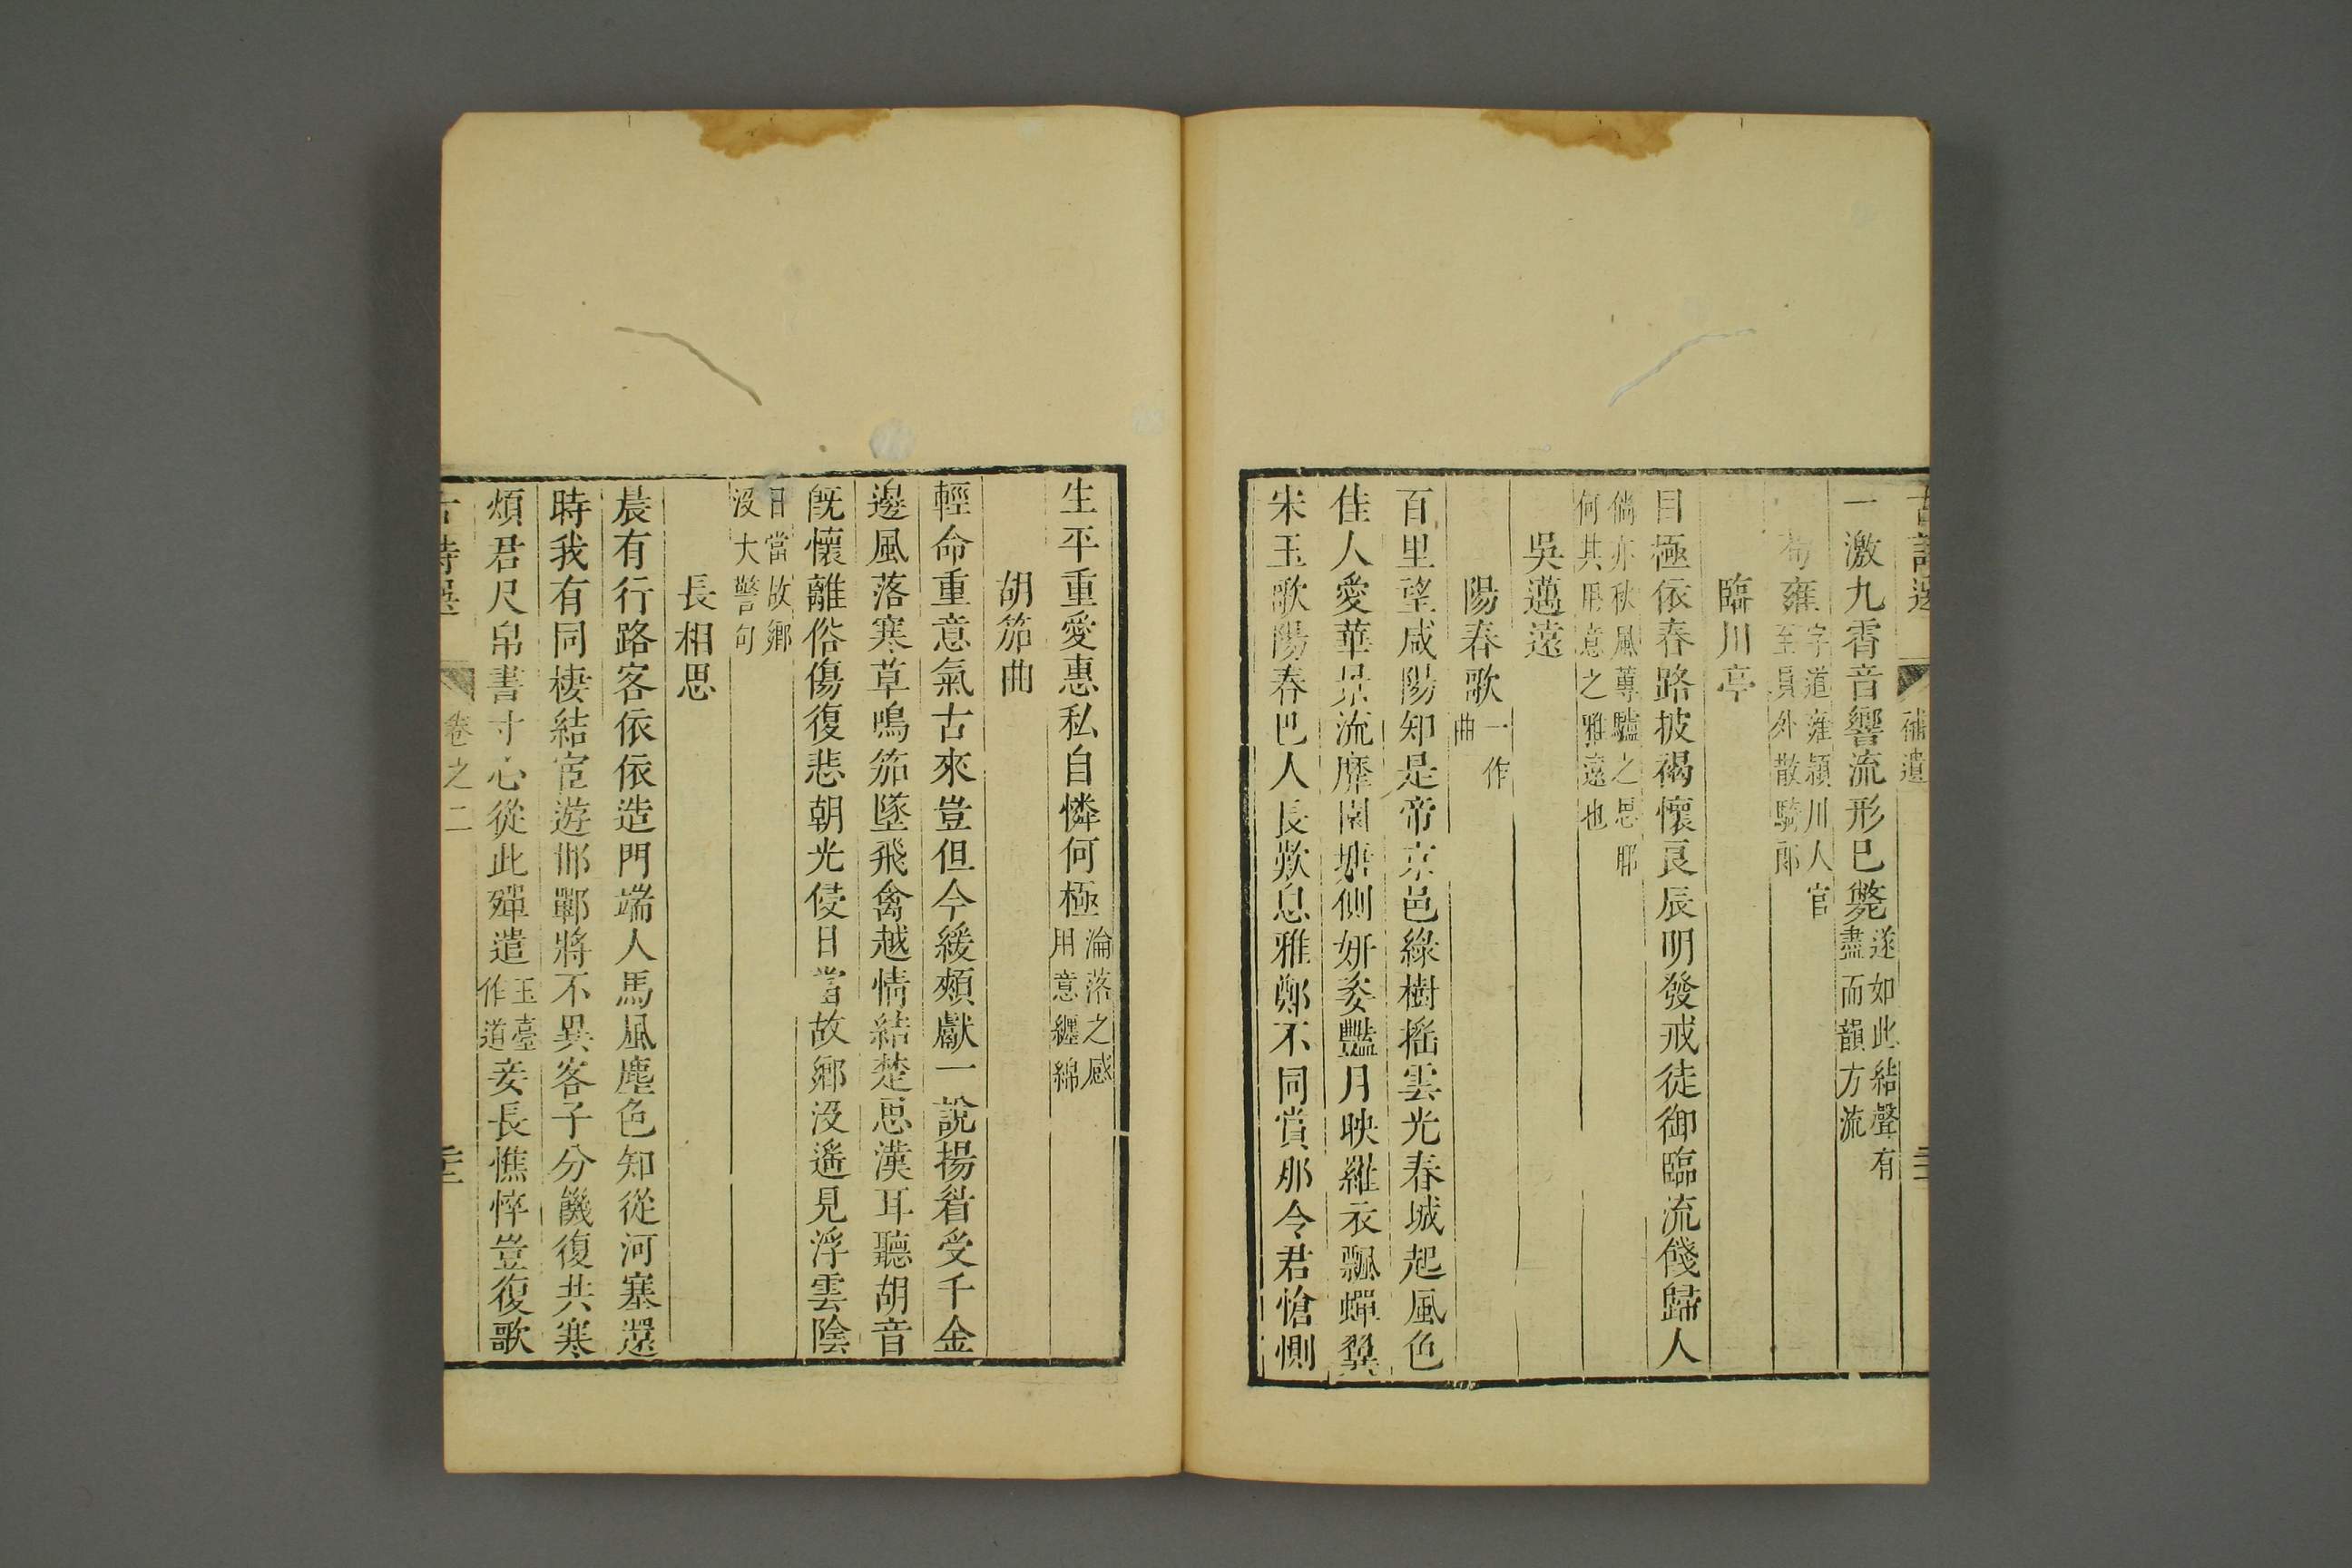 補遺
一激九霄音響流形已斃遂如此結聲有盡而韻方流
荀雍字道雍潁川人官至員外散騎郎
臨川亭
目極依春路披褐懷良辰明發戒徒御臨流餞歸人
倘亦秋風蓴鱸之思耶何其用意之雅遠也
吳邁遠
陽春歌一作曲
百里望咸陽知是帝京邑綠樹搖雲光春城起風色
佳人愛華景流靡園塘側妍姿豔月映羅衣飄蟬翼
宋玉歌陽春巴人長歎息雅鄭不同賞那令君愴惻
生平重愛惠私自憐何極淪落之感用意纏綿
胡笳曲
輕命重意氣古來豈但今緩頰獻一說揚眉受千金
邊風落寒草鳴笳墜飛禽越情結楚思漢耳聽胡音
旣懷離俗傷復悲朝光侵日當故鄉沒遙見浮雲陰
日當故鄉沒大警句
長相思
晨有行路客依依造門端人馬風塵色知從河塞還
時我有同棲結宦遊邯鄲將不異客子分饑復共寒
煩君尺帛書寸心從此殫遣玉臺作道妾長憔悴豈復歌
卷之二